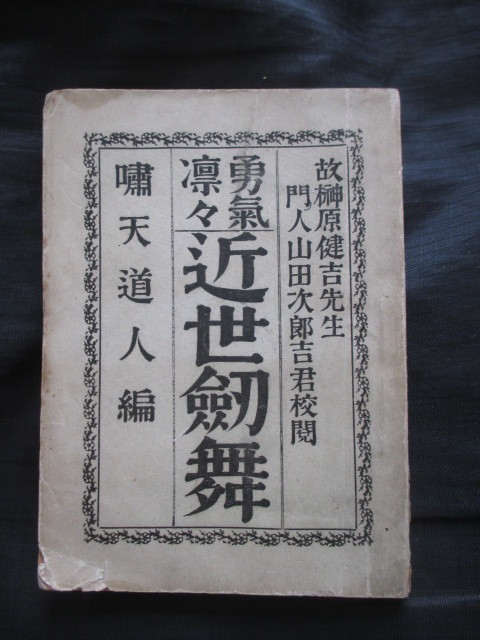 故榊原健吉先生
門人山田次郎吉君校閲
勇氣
凛々
近世劔舞
嘯天道人編